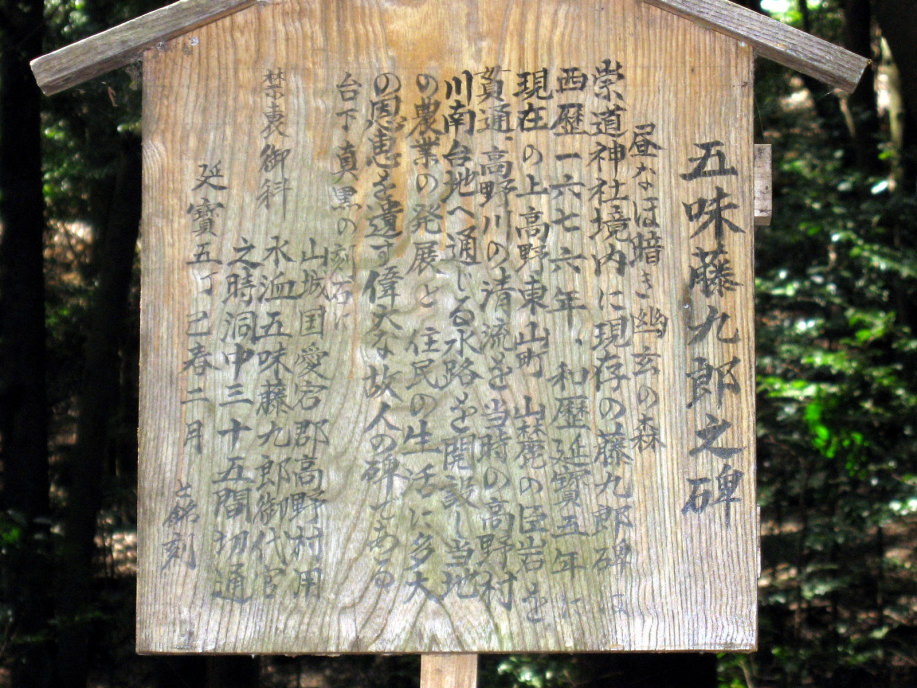 五味藤九郎之碑
昼なほ暗き幽玄の森
崇道神社境内に現存の藤九郎碑は
西歴一六七六年、和歴延寳五年に
現在の上高野東山町山麓の臣岩を
貫通、高野川の清流を当時の高野村
川南台地へ通じる水路を開設し当地
の農業の発展と住民の生活に多大
の恩恵を遺す偉大な故人の碑である
台下真黒の刻石に
山城国愛宕郡高野村用
禁裏御料
水洫五味藤九郎御代官
之時洞中三十五間切通
延寳五丁巳春二月 と銘刻